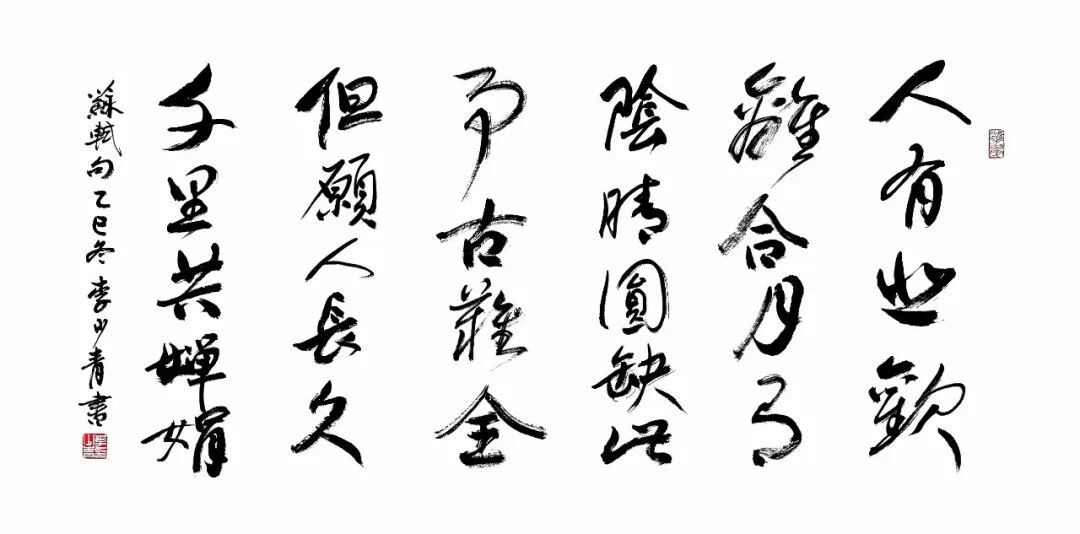 人有悲歡
離合月有
陰晴圓缺此
事古難全
但願人長久
千里共嬋娟
蘇軾句乙巳冬李山青書